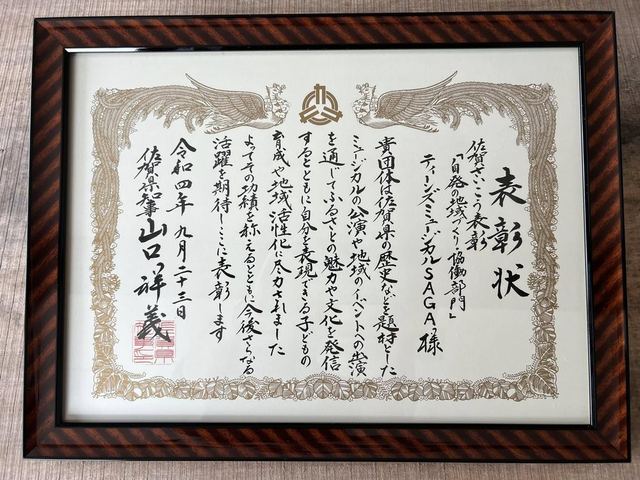 表彰状
佐賀さいこう表彰
「自発の地域づくり・協働部門」
ティーンズミュージカルSAGA様
貴団体は佐賀県の歴史などを題材とした
ミュージカルの公演や地域のイベントへの出演
を通じてふるさとの魅力や文化を発信
するとともに自分を表現できる子どもの
育成や地域活性化に尽力されました
よってその功績を称えるとともに今後さらなる
活躍を期待しここに表彰します
令和四年九月二十三日
佐賀県知事 山口祥義